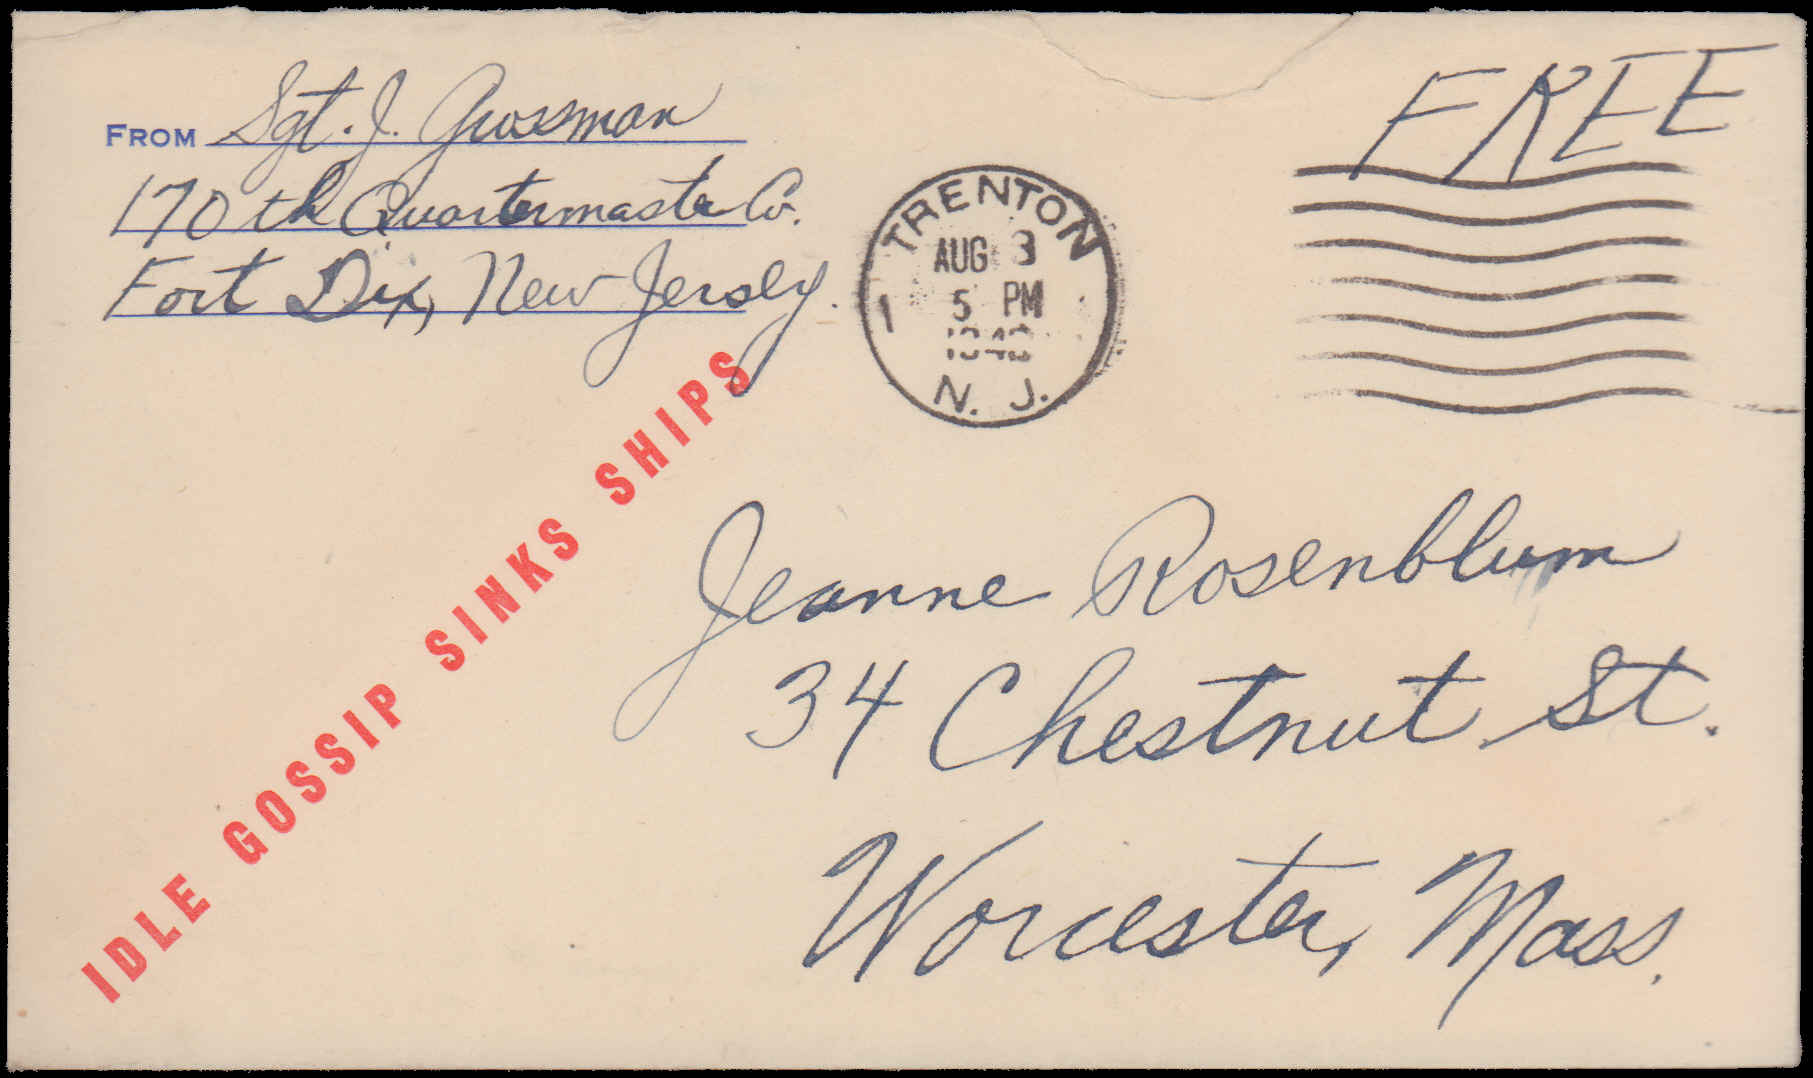 FROM Sgt. J. Grossman
170th Quartermaster Co.
Fort Dix, New Jersey.
FREE
TRENTON
AUG 3
5 PM
1
N. J.
IDLE GOSSIP SINKS SHIPS
Jeanne Rosenblum
34 Chestnut St.
Worcester, Mass.